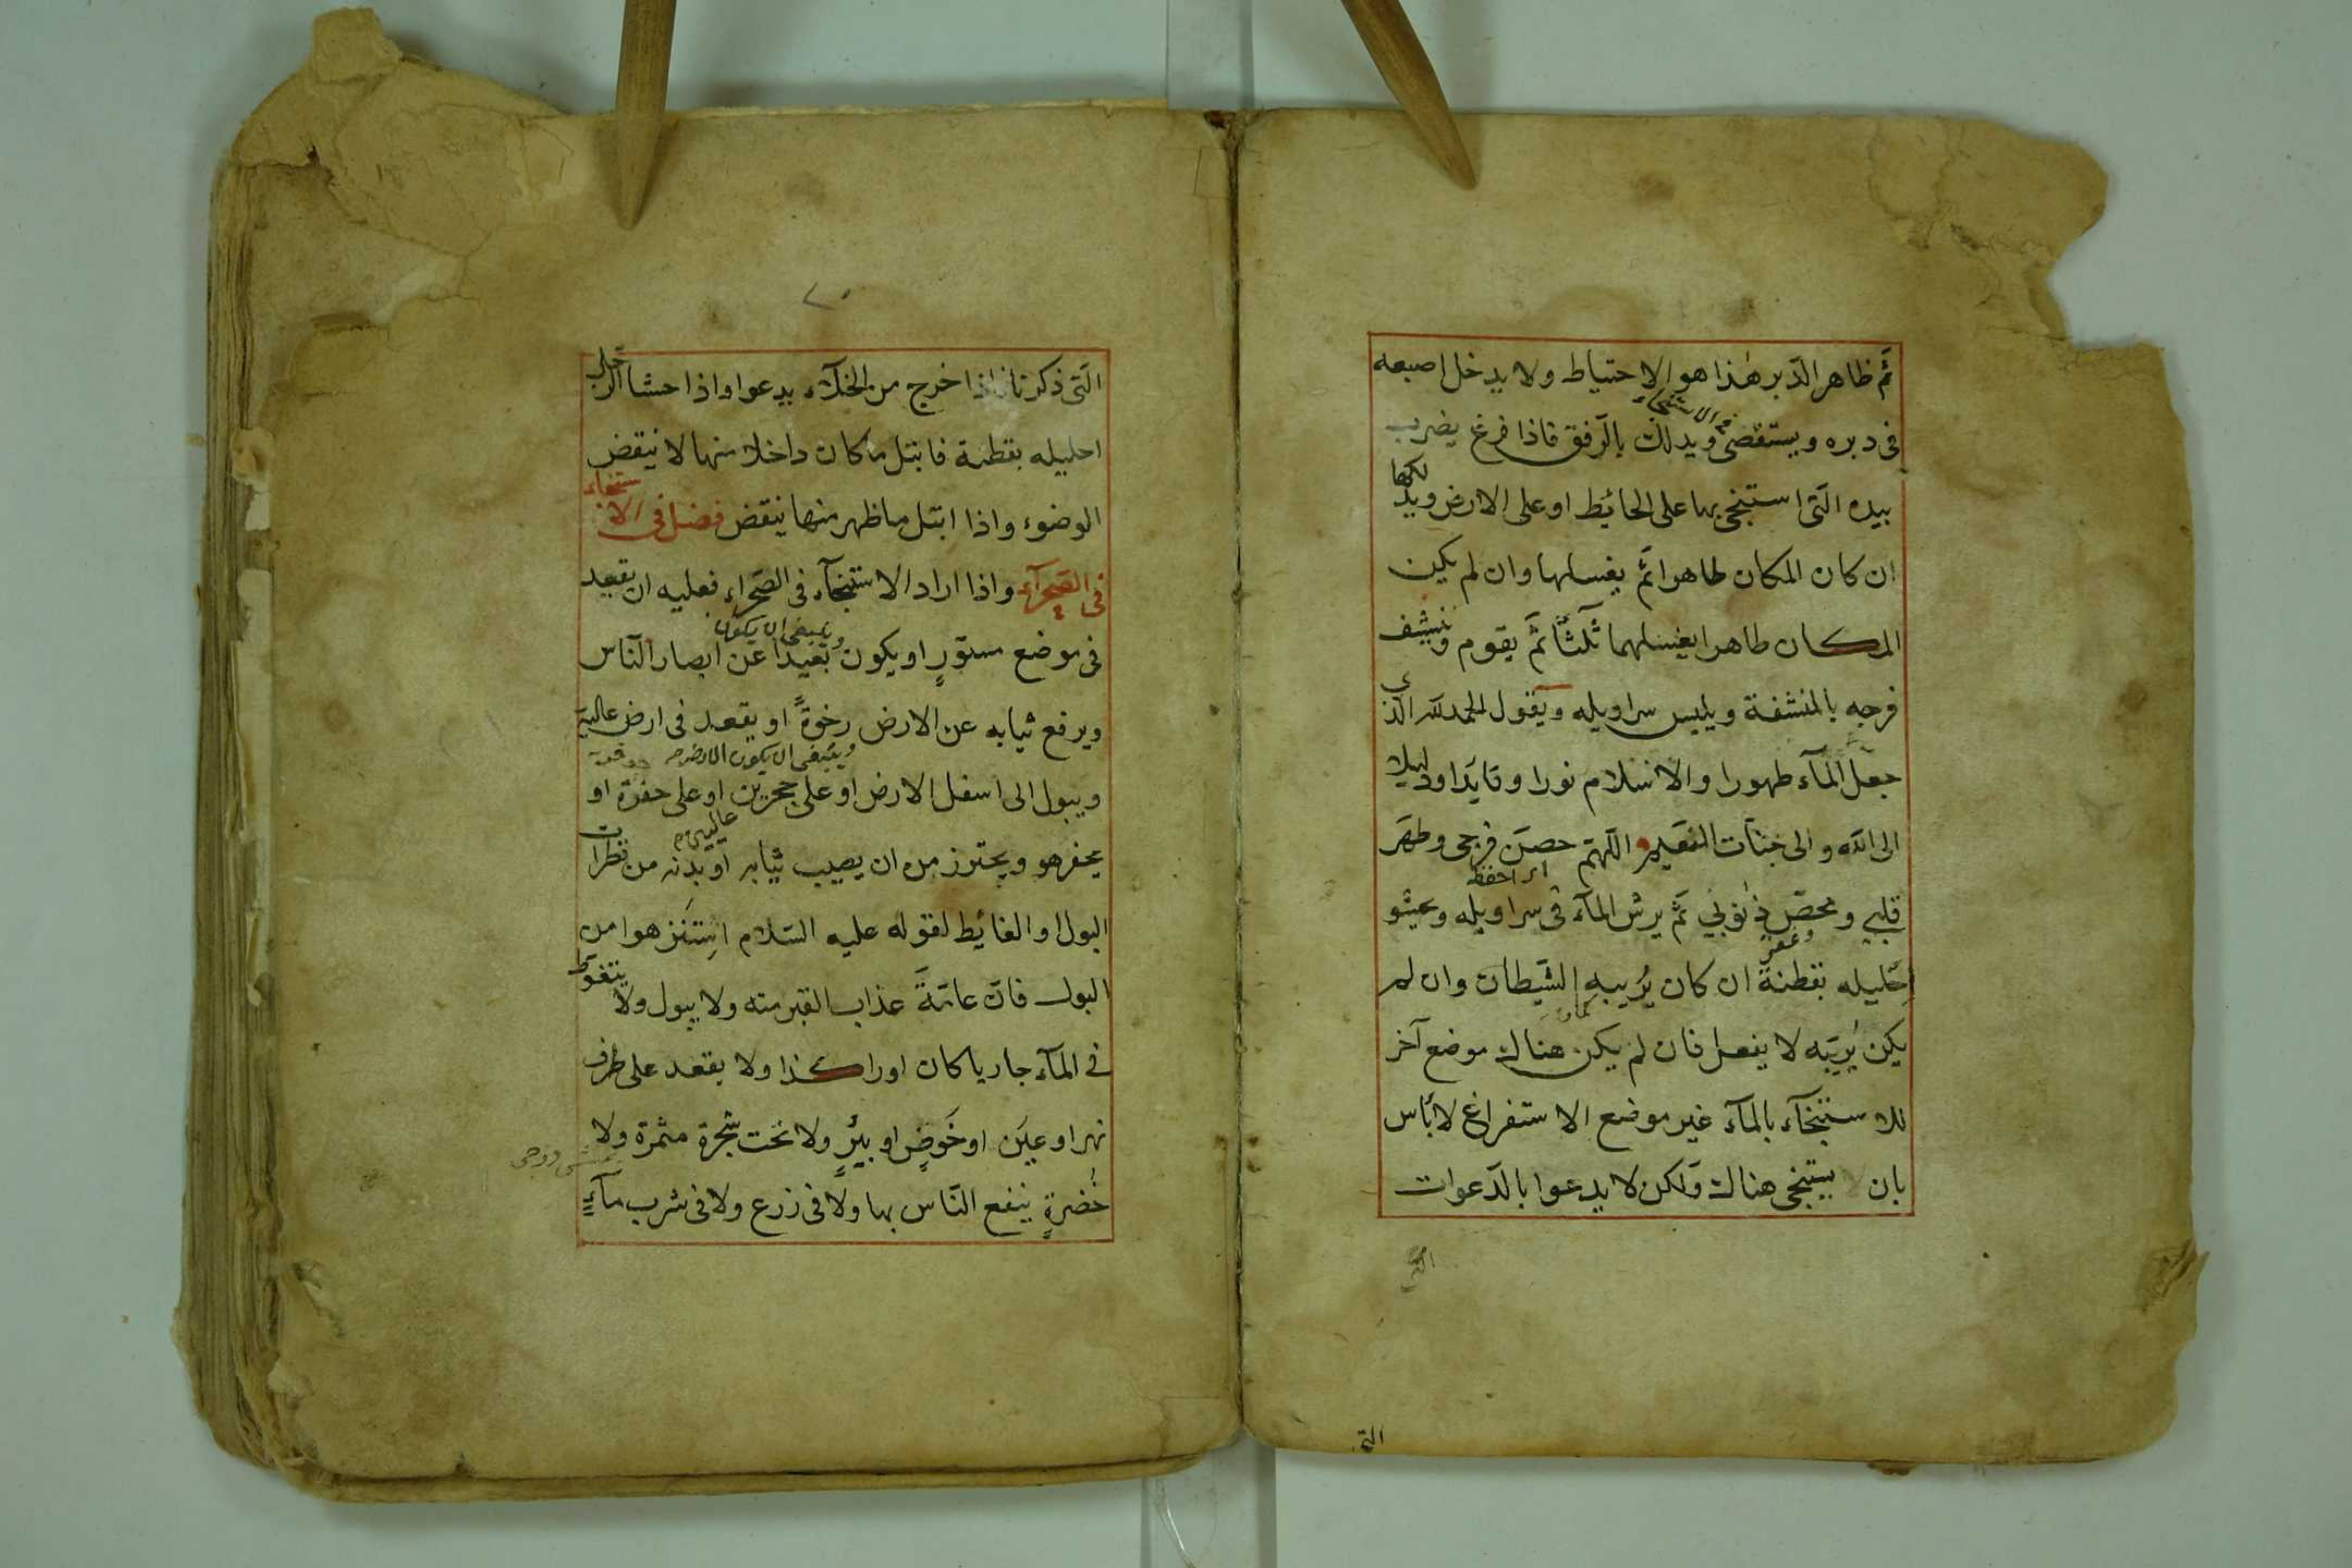 ثمّ ظاهر الدّبر هٰذا هو الاحتياط ولا يدخل اصبعه
فى دبره ويستقصى ويدلك بالرّفق فاذا فرغ يضرب
فى الاستنجاء
بيده الّتى استنجى بها على الحائط او على الارض ويدلكها
ان كان المكان طاهرا ثمّ يغسلها وان لم يكن
المكان طاهرا يغسلهما ثلثاً ثمّ يقوم وينشف
فرجه بالمنشفة ويلبس سراويله ويقول الحمد لله الّذى
جعل المآء طهورا والاسلام نورا وقايدا ودليلا
الى الله والى جنّات النّعيم اللّهمّ حصّن فرجى وطهّر
اى احفظ
قلبي ومحّص ذنوبي ثمّ يرش المآء فى سراويله ويحشو
احليله بقطنة ان كان يُريبه الشّيطان وان لم
يكن يُريبه لا يفعل فان لم يكن هناك موضع آخر
للاستنجآء بالمآء غير موضع الاستفراغ لا بأس
بان يستنجى هناك ولكن لا يدعوا بالدّعوات
الّتى
الّتى ذكرنا فاذا خرج من الخلآء يدعوا واذا حشا الرجل
احليله بقطنة فابتل ما كان داخلا منها لا ينقض
الوضوء واذا ابتل ما ظهر منها ينقض فصل فى الاستنجاء
فى الصّحرآء واذا اراد الاستنجآء فى الصّحراء فعليه ان يقعد
فى موضع مستورٍ او يكون بعيداً عن ابصار النّاس
وينبغى ان يكون
ويرفع ثيابه عن الارض رخوةً او يقعد فى ارض عالية
وينبغى ان يكون الارض
ويبول الى اسفل الارض او على حجرين او على حفرة او
عاليين
يحفر هو ويحترز من ان يصيب ثيابه او بدنه من قطرات
البول او الغائط لقوله عليه السّلام استنزهوا من
البول فانّ عامّةَ عذاب القبر منه ولا يبول ولا يتغوّط
فى المآء جاريا كان او راكدا ولا يقعد على طرف
نهر او عين او حَوضٍ او بيرٍ ولا تحت شجرة مثمرة ولا
خُضرةٍ ينفع النّاس بها ولا فى زرع ولا فى شرب مآءٍ